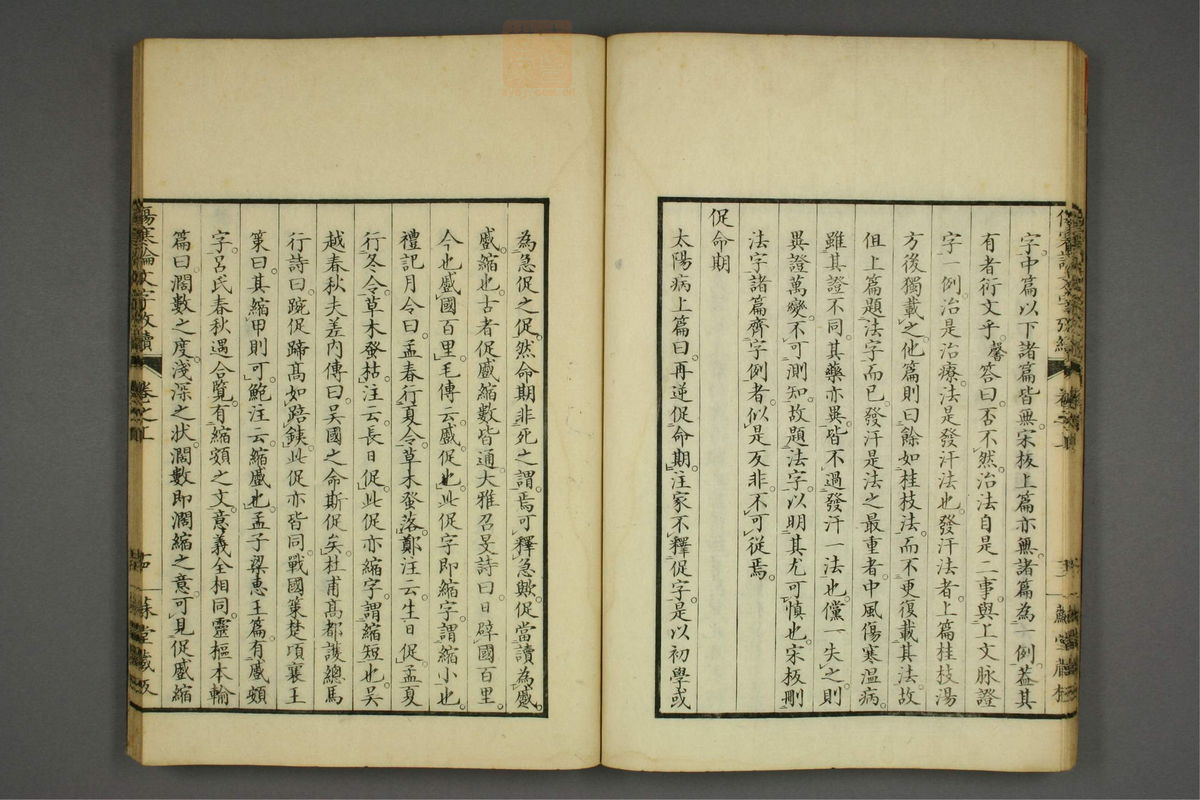 字中篇以下諸篇皆無宋板上篇亦無諸篇為一例蓋其
有者衍文乎馨答曰否不然治法自是二事與上文脉證
字一例治是治療法是發汗法也發汗法者上篇桂枝湯
方後獨載之他篇則曰餘如桂枝法而不更復載其法故
但上篇題法字而已發汗是法之最重者中風傷寒溫病
雖其證不同其藥亦異皆不過發汗一法也儻一失之則
異證萬變不可測知故題法字以明其尤可慎也宋板刪
法字諸篇齊字例者似是反非不可從焉
促命期
太陽病上篇曰再逆促命期注家不釋促字是以初學或
為急促之促然命期非死之謂焉可釋急歟促當讀為蹙
蹙縮也古者促蹙縮數皆通大雅召旻詩曰日辟國百里
今也蹙國百里毛傳云蹙促也此促字即縮字謂縮小也
禮記月令曰孟春行夏令草木蚤落鄭注云生日促孟夏
行冬令草木蚤枯注云長日促此促亦縮字謂縮短也吳
越春秋夫差內傳曰吳國之命斯促矣杜甫高都護總馬
行詩曰踠促蹄高如踣鐵此促亦皆同戰國策楚頃襄王
策曰其縮甲則可鮑注云縮蹙也孟子梁惠王篇有蹙頞
字呂氏春秋遇合覽有縮頞之文意義全相同靈樞本輸
篇曰濶數之度淺深之狀濶數即濶縮之意可見促蹙縮
傷寒論文字攷續